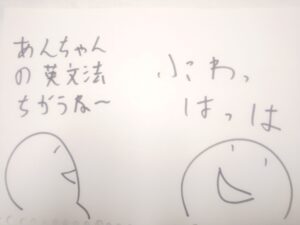 あんちゃん
の英文法
ちがうな〜
ふわっ
はっは